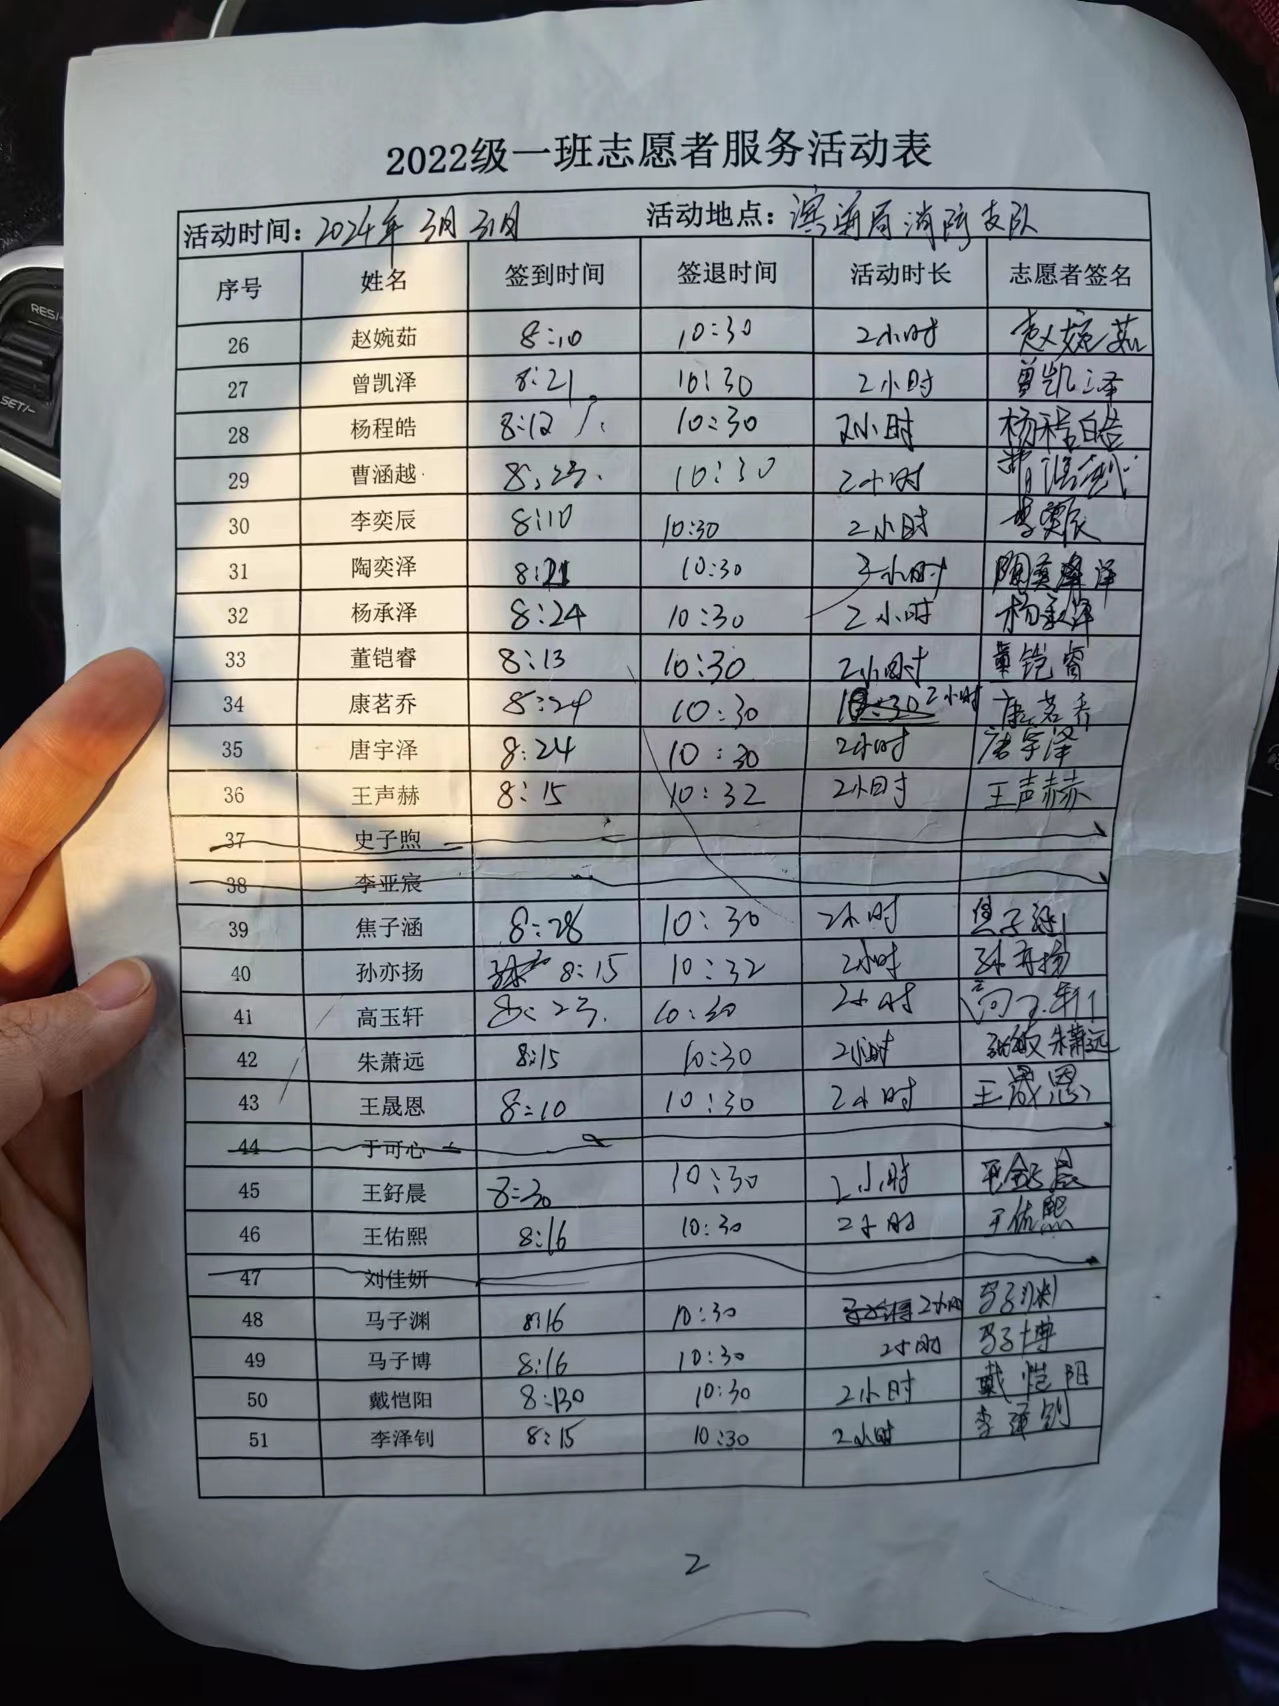 2022级一班志愿者服务活动表
活动时间：2024年3月31日 活动地点：滨海局消防支队
序号 姓名 签到时间 签退时间 活动时长 志愿者签名
26 赵婉茹 8:10 10:30 2小时 赵婉茹
27 曾凯泽 8:21 10:30 2小时 曾凯泽
28 杨程皓 8:12 10:30 2小时 杨程皓
29 曹涵越 8:23 10:30 2小时 曹涵越
30 李奕辰 8:10 10:30 2小时 李奕辰
31 陶奕泽 8:21 10:30 2小时 陶奕泽
32 杨承泽 8:24 10:30 2小时 杨承泽
33 董铠睿 8:13 10:30 2小时 董铠睿
34 康茗乔 8:24 10:30 10:30 2小时 康茗乔
35 唐宇泽 8:24 10:30 2小时 唐宇泽
36 王声赫 8:15 10:32 2小时 王声赫
37 史子煦
38 李亚宸
39 焦子涵 8:28 10:30 2小时 焦子涵
40 孙亦扬 8:15 10:32 2小时 孙亦扬
41 高玉轩 8:23 10:30 2小时 高玉轩
42 朱萧远 8:15 10:30 2小时 朱萧远
43 王晟恩 8:10 10:30 2小时 王晟恩
44 于可心
45 王釨晨 8:30 10:30 2小时 王釨晨
46 王佑熙 8:16 10:30 2小时 王佑熙
47 刘佳妍
48 马子渊 8:16 10:30 2小时 马子渊
49 马子博 8:16 10:30 2小时 马子博
50 戴恺阳 8:30 10:30 2小时 戴恺阳
51 李泽钊 8:15 10:30 2小时 李泽钊
2
RES/+
SET/-